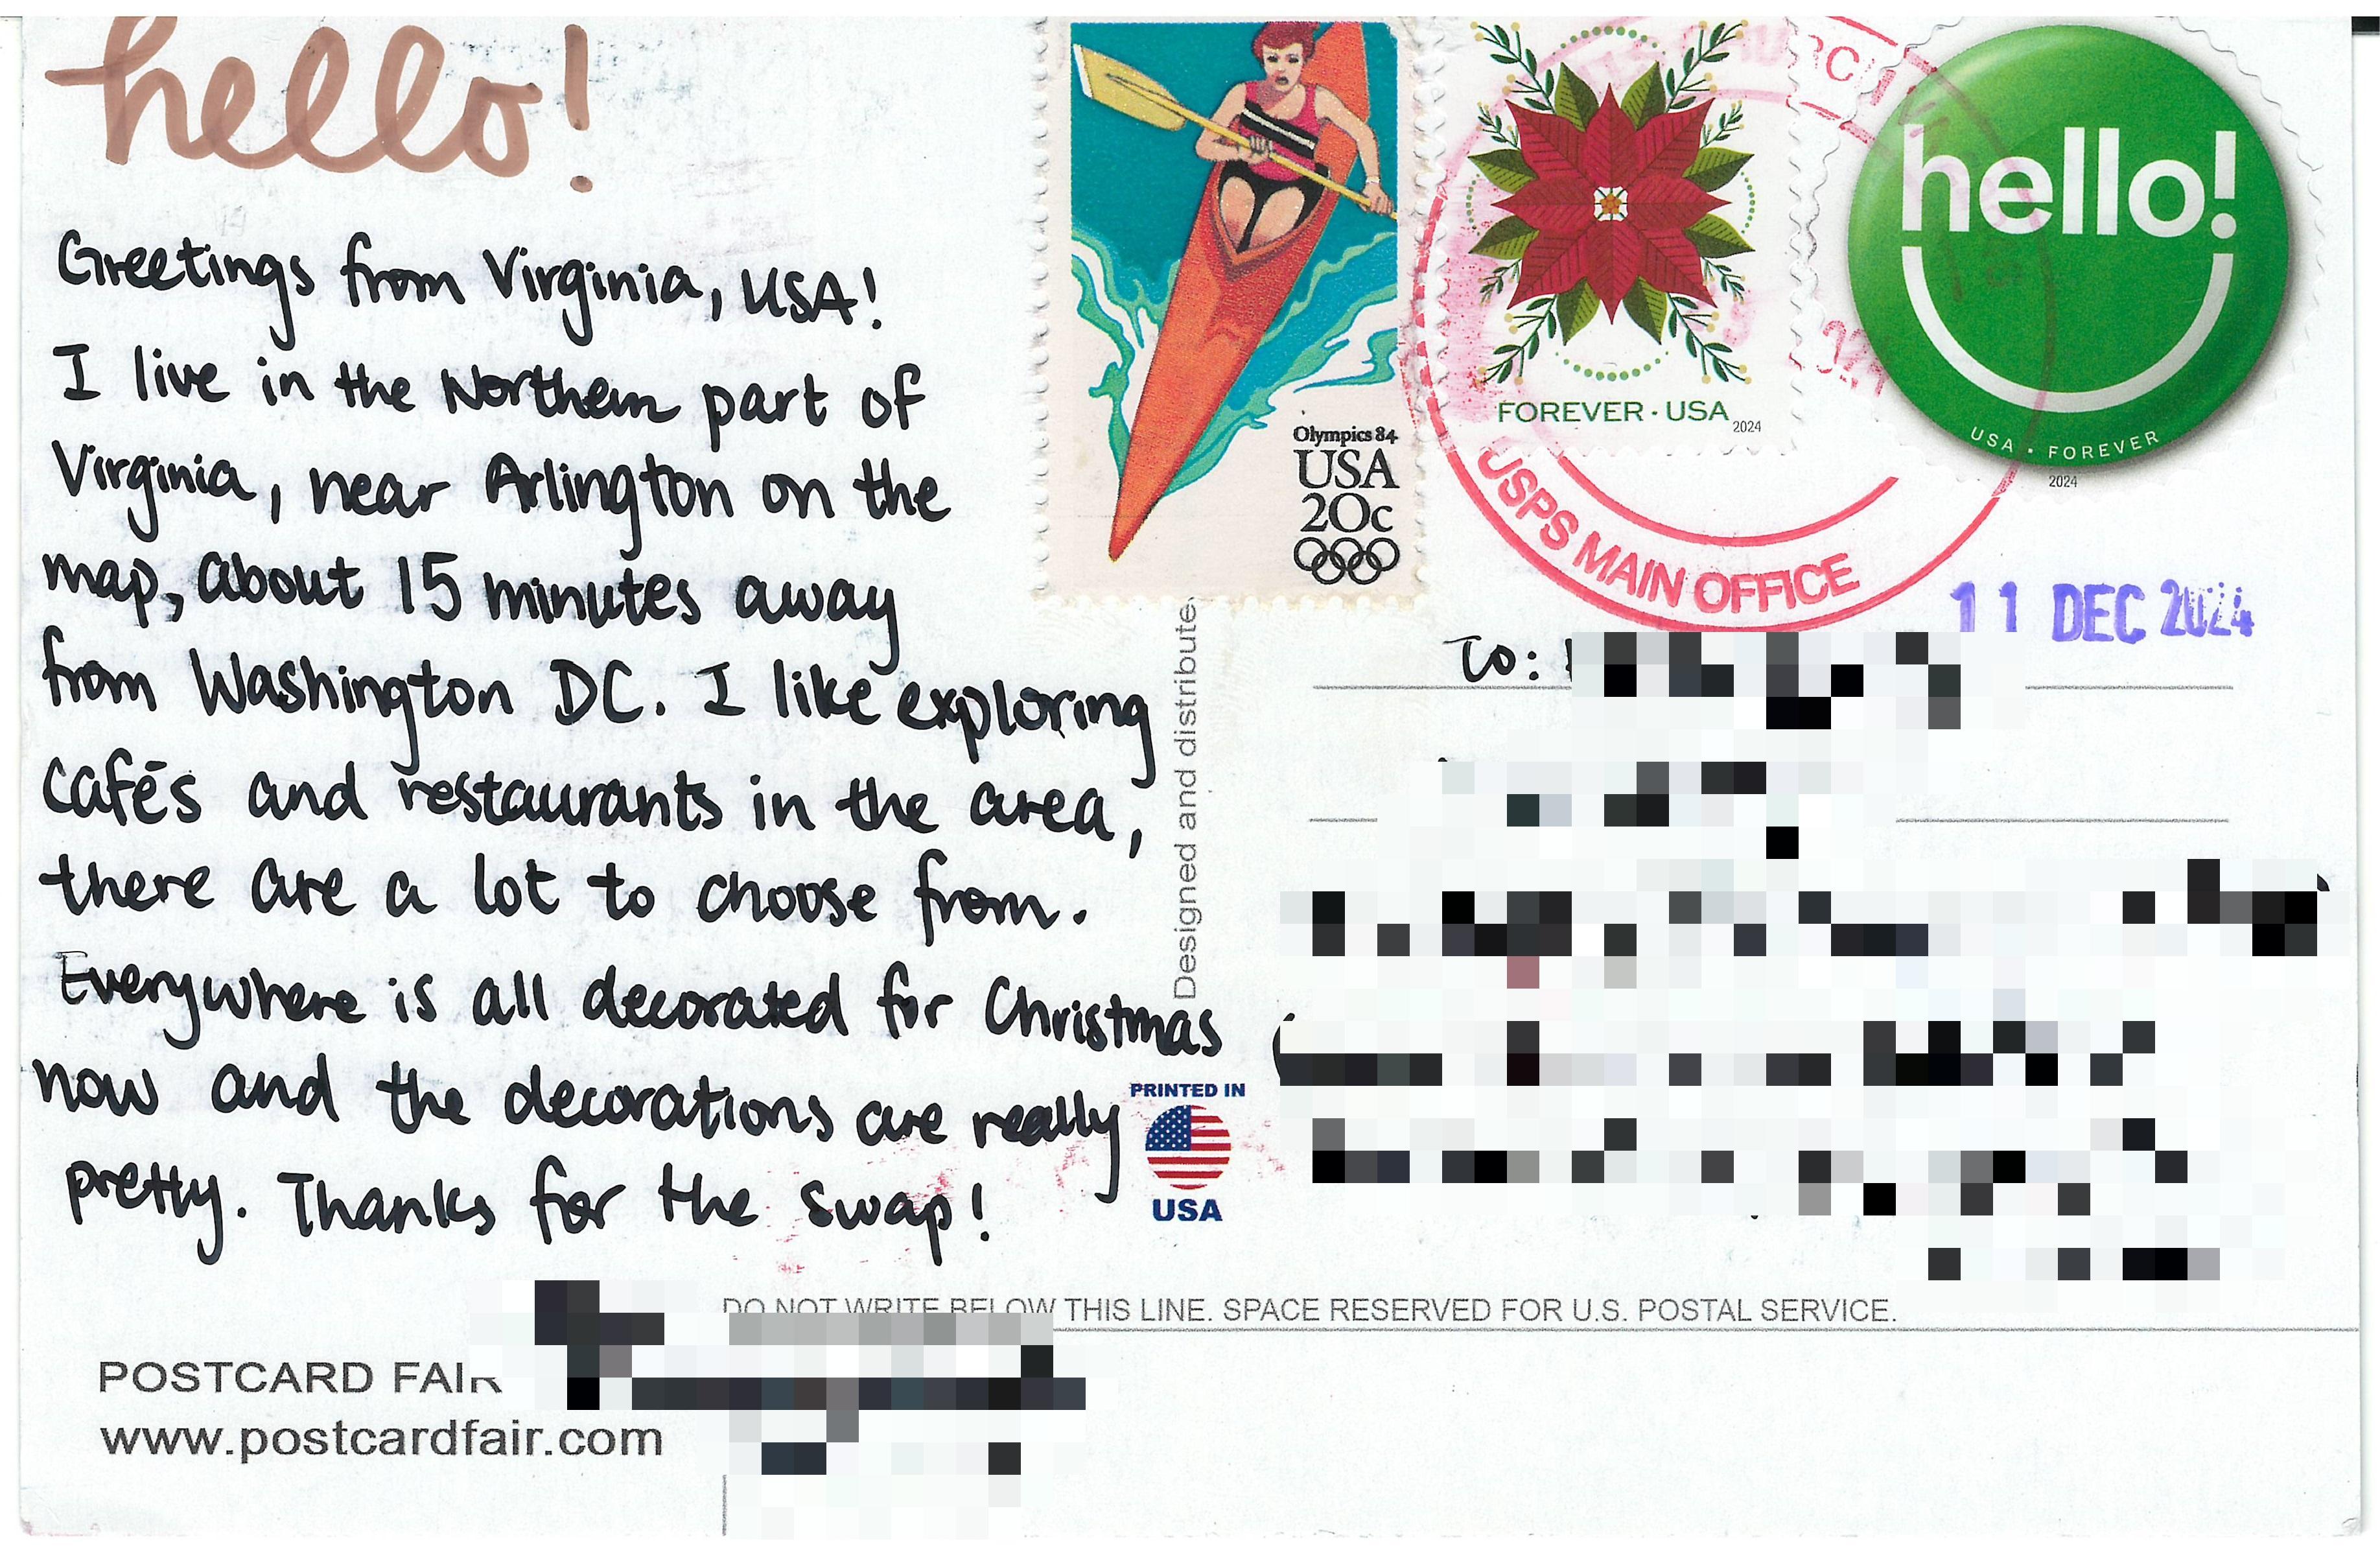 hello!
Greetings from Virginia, USA!
I live in the Northern part of
Virginia, near Arlington on the
map, about 15 minutes away
from Washington DC. I like exploring
cafés and restaurants in the area,
there are a lot to choose from.
Everywhere is all decorated for Christmas
now and the decorations are really
pretty. Thanks for the swap!
Olympics 84
USA
20c
FOREVER · USA
2024
hello!
USA · FOREVER
2024
USPS MAIN OFFICE
11 DEC 2024
To:
Designed and distribute
PRINTED IN
USA
DO NOT WRITE BELOW THIS LINE. SPACE RESERVED FOR U.S. POSTAL SERVICE.
POSTCARD FAIR
www.postcardfair.com